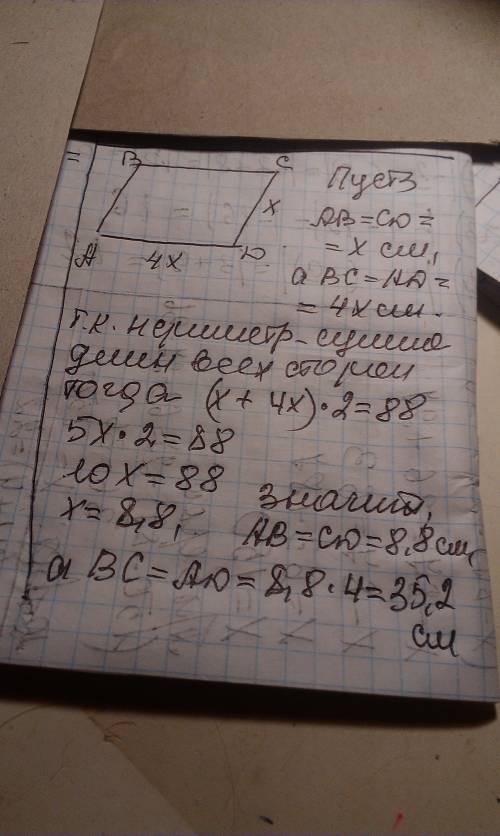 B C
x
A 4x D
Пусть
AB = CD =
= x см,
а BC = AD =
= 4x см.
т.к. периметр - сумма
длин всех сторон
тогда (x + 4x) · 2 = 88
5x · 2 = 88
10x = 88
x = 8,8,
Значит,
AB = CD = 8,8 см,
а BC = AD = 8,8 · 4 = 35,2
см